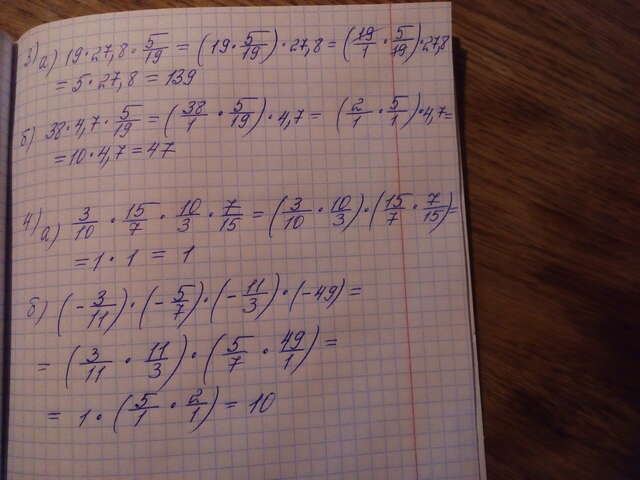 3) а) 19 · 27,8 · 5/19 = (19 · 5/19) · 27,8 = (19/1 · 5/19) · 27,8
= 5 · 27,8 = 139
б) 38 · 4,7 · 5/19 = (38/1 · 5/19) · 4,7 = (2/1 · 5/1) · 4,7 =
= 10 · 4,7 = 47
4) а) 3/10 · 15/7 · 10/3 · 7/15 = (3/10 · 10/3) · (15/7 · 7/15) =
= 1 · 1 = 1
б) (- 3/11) · (- 5/7) · (- 11/3) · (-49) =
= (3/11 · 11/3) · (5/7 · 49/1) =
= 1 · (5/1 · 2/1) = 10